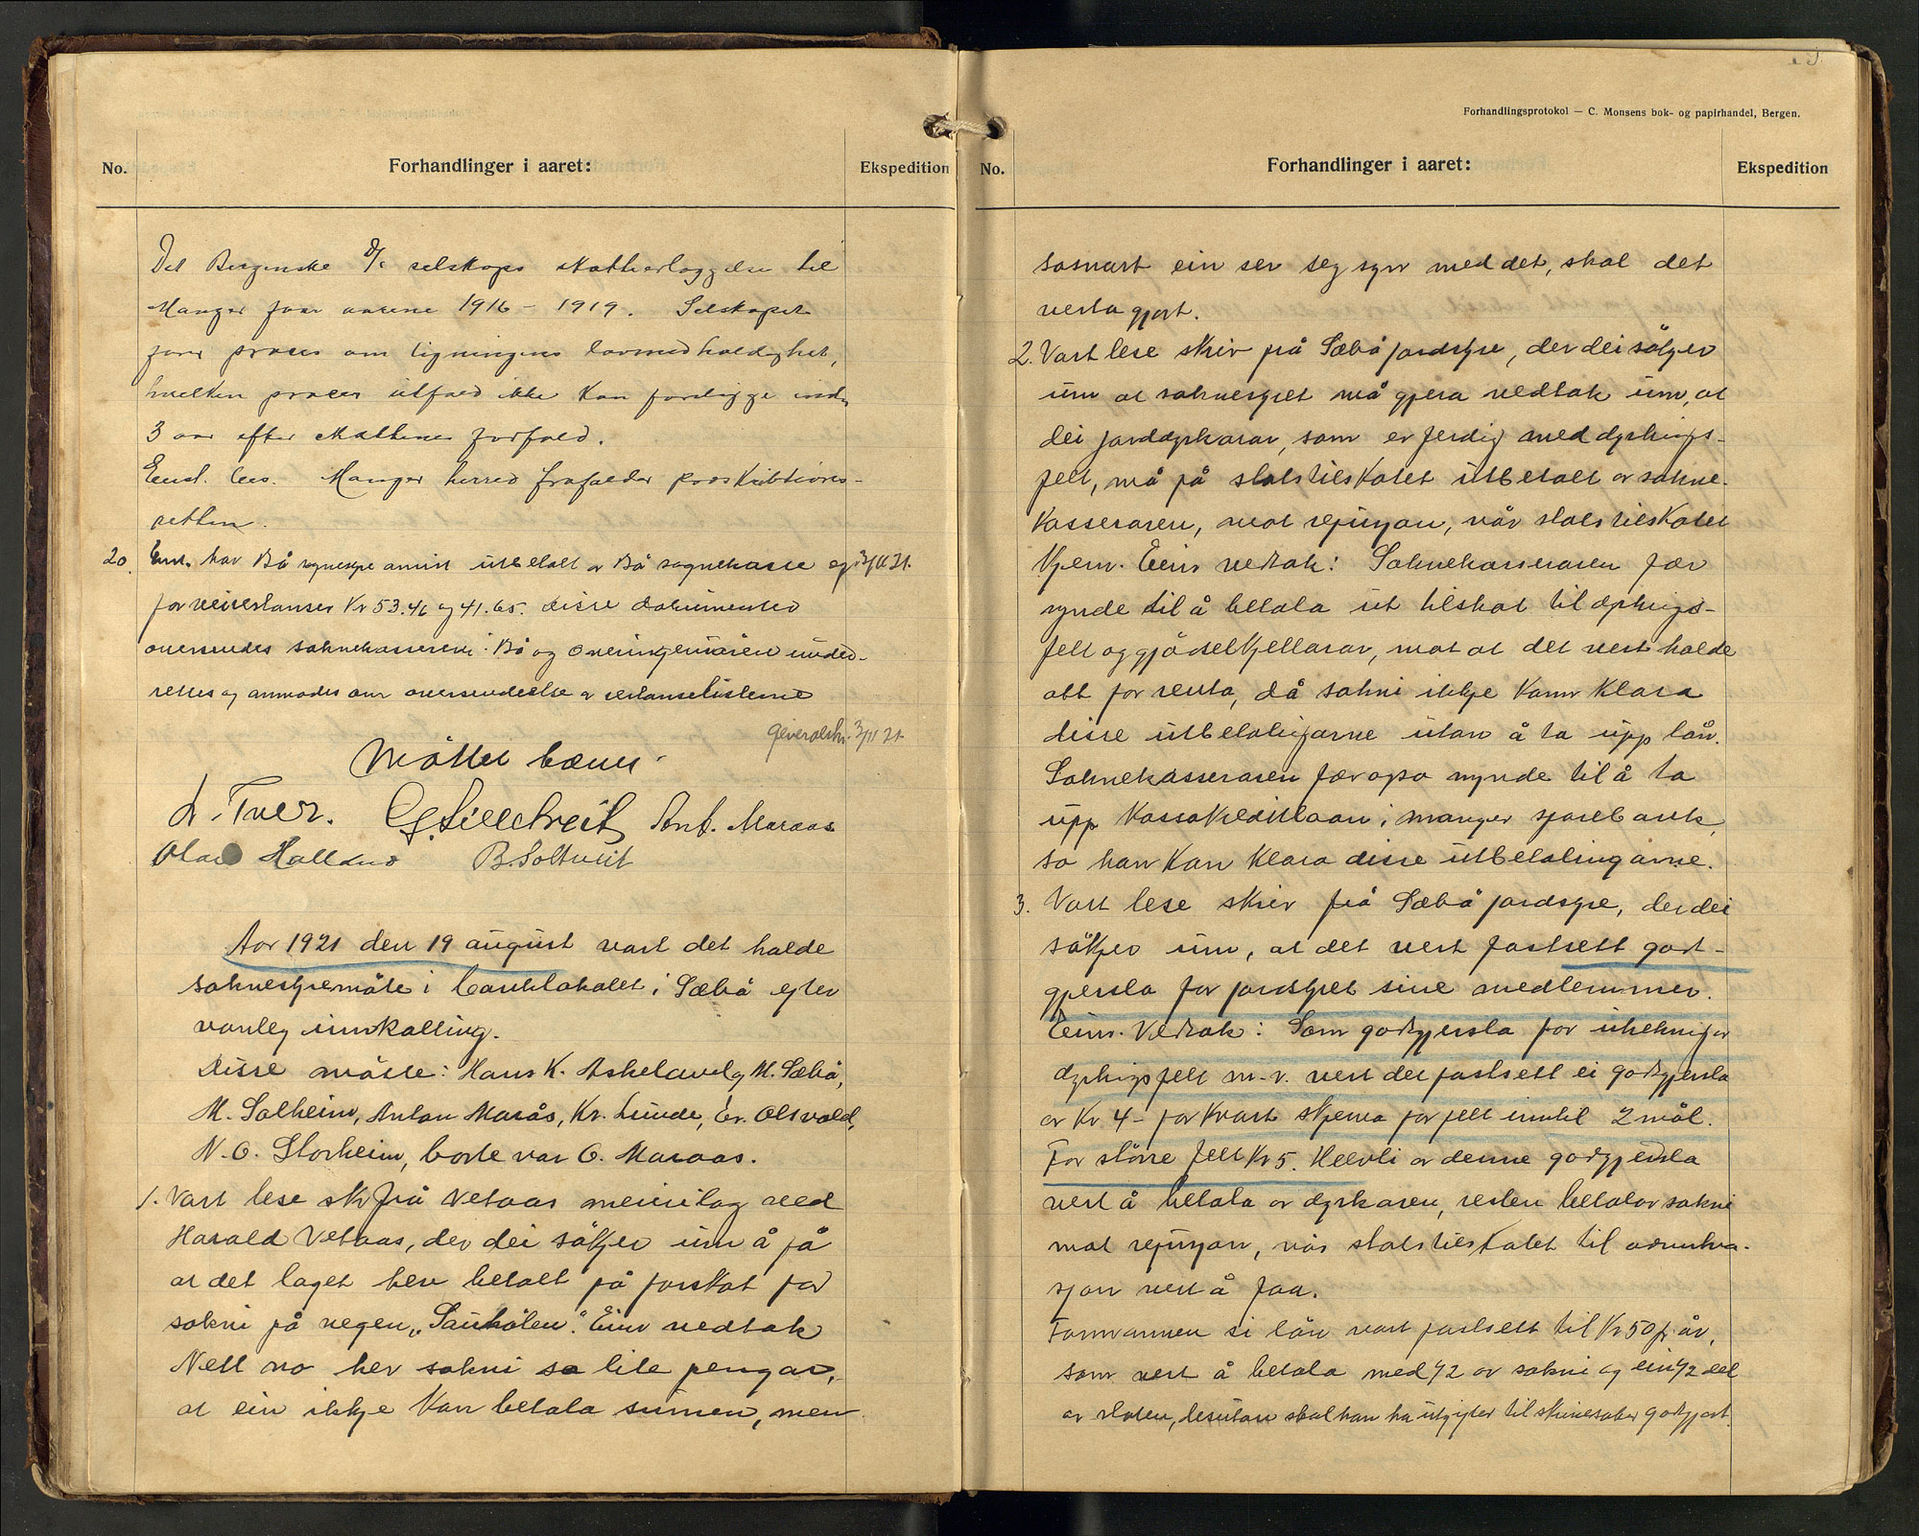 No.
Forhandlinger i aaret:
Ekspedition
Det Bergenske D/s selskaps skatterlæggelse til
Manger for aarene 1916 – 1919. Selskapet
fører proces om ligningens lovmedholdighet,
hvilken proces utfald ikke kan foreligge inden
3 aar efter skattenes forfald.
Enst. bes. Manger herred frafalder præskriptions-
retten.
20. Enst. har Bø sognestyre anvist utbetalt av Bø sognekasse 3/11 21.
for veirestanser Kr 53.46 og 41.65. disse dokumenter
oversendes soknekassereren i Bø og overingeniøren under-
rettes og anmodes om oversendelse av restanselisterne
3/11 21.
Møttet hævet.
A. Tver. Ant. Maraas
Olai Halland B. Soltveit
Aar 1921 den 19 august vart det halde
soknestyremøte i banklokalet i Sæbø etter
vanleg innkalling.
Disse møtte: Hans K. Askeland, M. Sæbø,
M. Solheim, Anton Marås, Kr. Lunde, Er. Olsvold,
N. O. Storheim, borte var O. Maraas.
1. Vart lese skr frå Vetaas meierilag ved
Harald Vetaas, der dei søkjer um å få
at det laget hev betalt på forskot for
sokni på vegen „Sauhölen". Einr vedtak
Nett no hev sokni so lite pengar,
at ein ikkje kan betala sumen, men
Forhandlingsprotokol — C. Monsens bok- og papirhandel, Bergen.
No.
Forhandlinger i aaret:
Ekspedition
sosnart ein ser seg syn med det, skal det
verta gjort.
2. Vart lese skriv frå Sæbø jordstyre, der dei søkjer
um at soknestyret må gjera vedtak um, at
dei jorddyrkarar, som er ferdig med dyrkings-
felt, må få statstilskotet utbetalt av sokne-
kasseraren, mot refusjon, når statstilskotet
kjem. Einr vedtak: Soknekasseraren fær
mynde til å betala ut tilskot til dyrkings-
felt og gjødselkjellarar, mot at det vert halde
att for renta, då sokni ikkje kann klara
disse utbetalingarne utan å ta upp lån.
Soknekasseraren fær opso mynde til å ta
upp kassakreditlaan i Manger sparebank,
so han kan klara disse utbetalingarne.
3. Vart lese skriv frå Sæbø jordstyre, der dei
søkjer um, at det vert fastsett godt-
gjersla for jordstyret sine medlemmer.
Einr. Vedtak: Som godtgjersla for utrekning av
dyrkingsfelt m.v. vert det fastsett ei godtgjersla
av Kr 4- for kvart skjema for felt inntil 2 mål.
For større felt Kr 5. Helvti av denne godtgjersla
vert å betala av dyrkaren, resten betalar sokni
mot refusjon, når statstilskotet til
sjon vert å faa.
Formannen si løn vart fastsett til Kr 50 pr år,
som vert å betala med 1/2 av sokni og ein 1/2 del
av staten, desutan skal han ha utgifter til skrivesaker godtgjort.